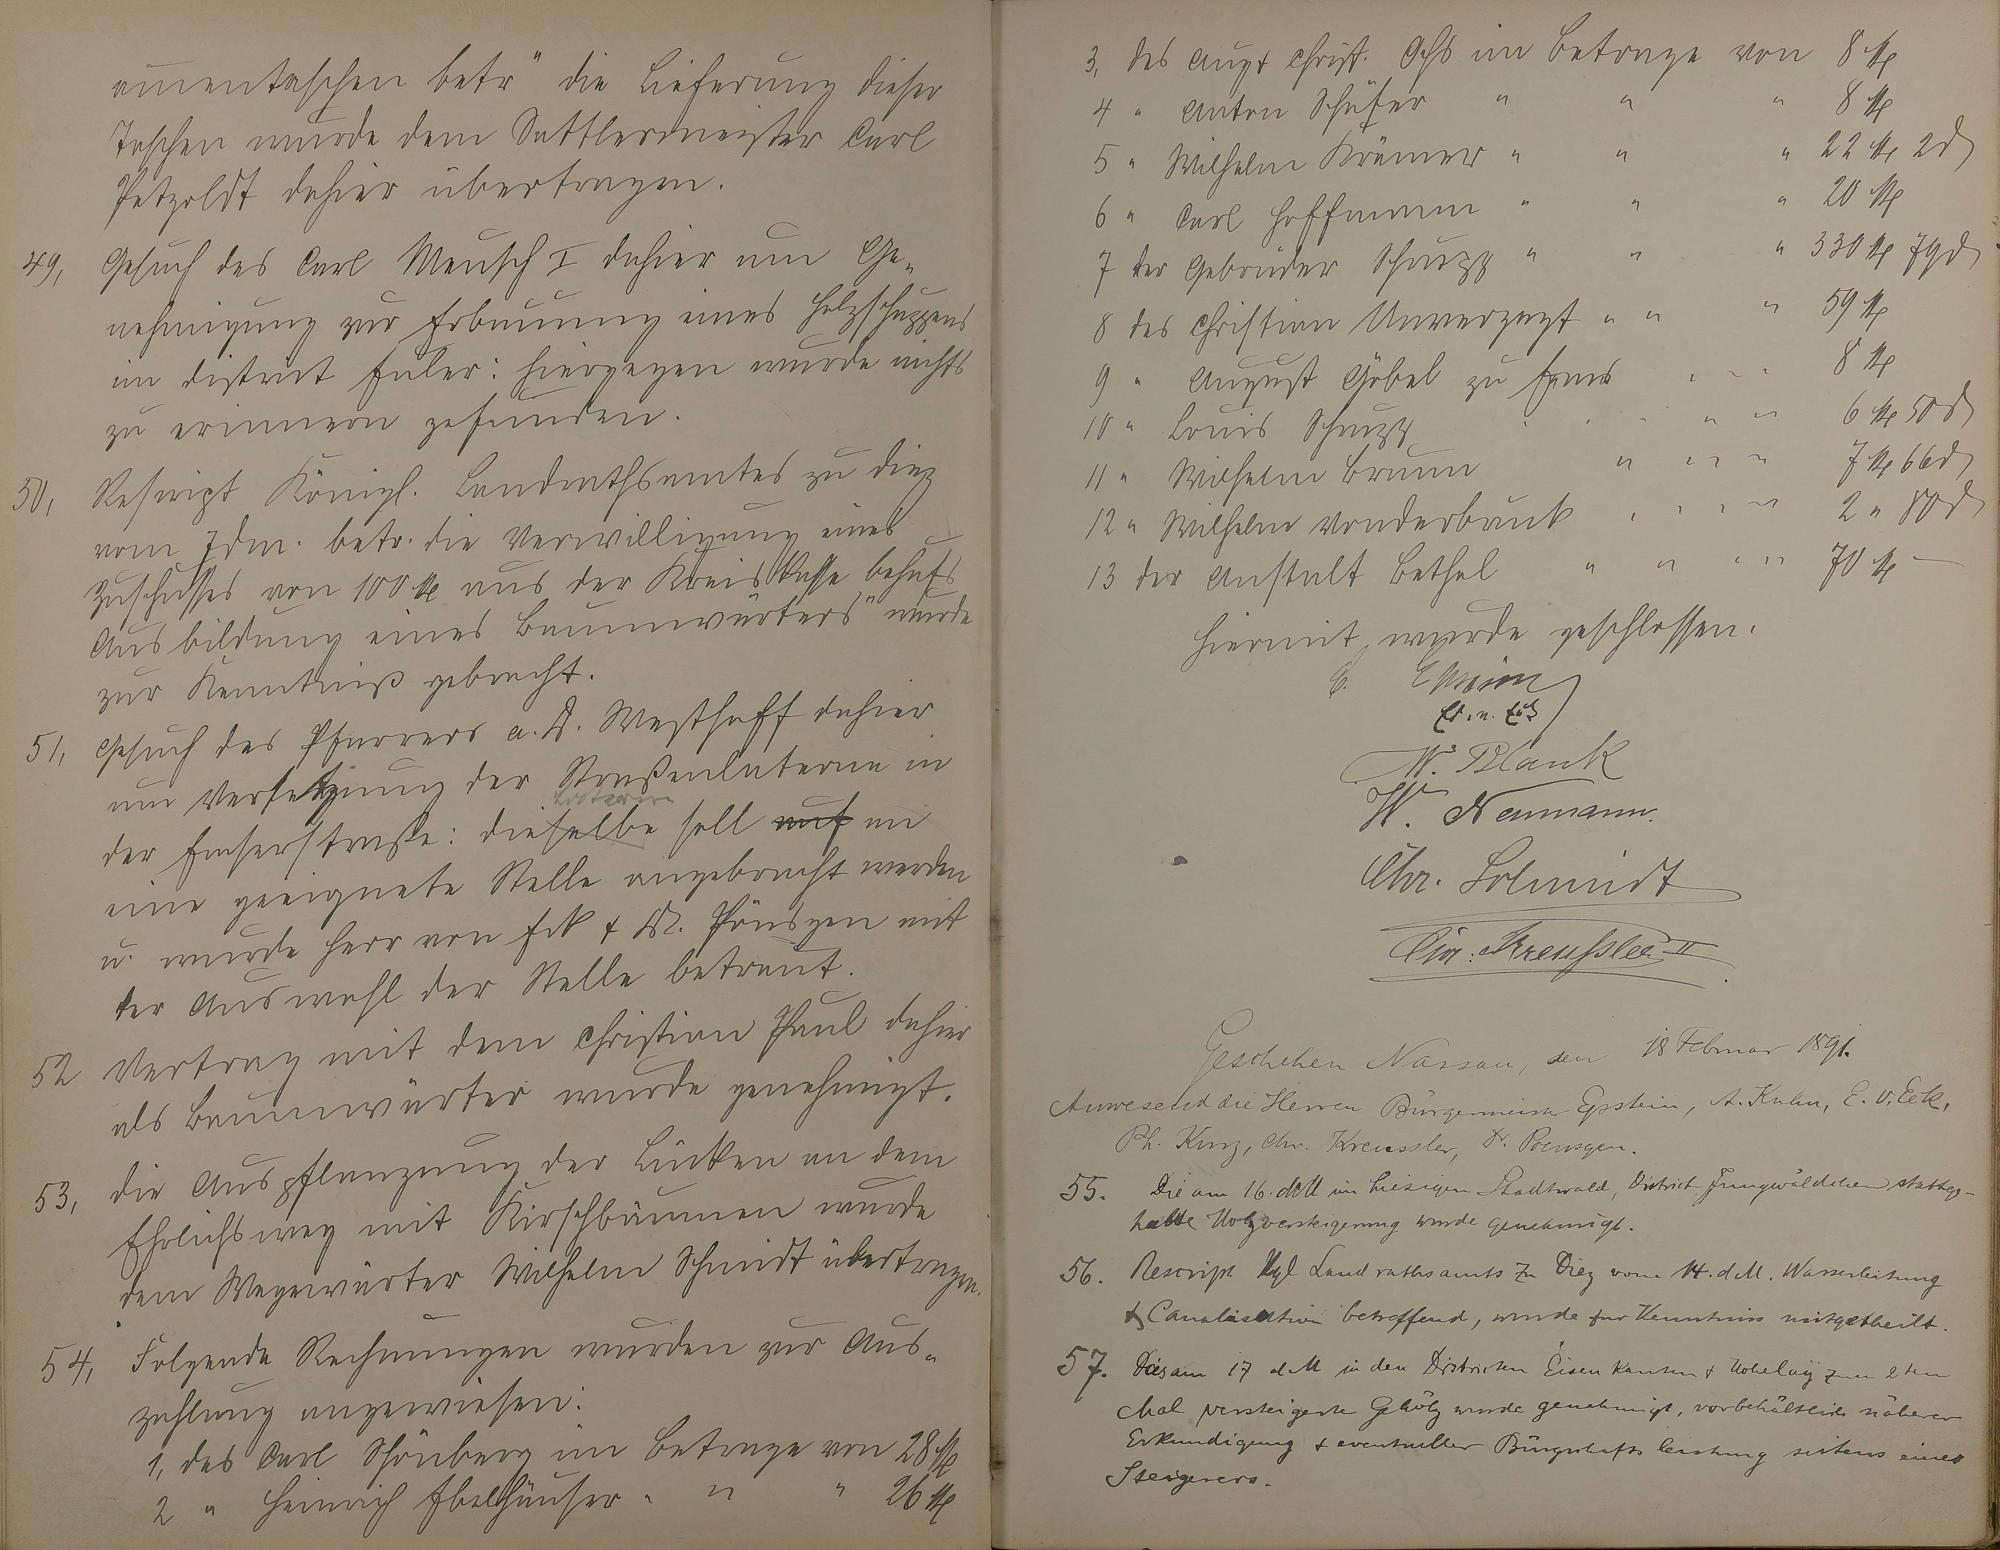 amentaschen betr" die Lieferung dieser
Taschen wurde dem Sattlermeister Carl
Petzoldt dahier übertragen.
49, Gesuch des Carl Meusch I dahier um Ge-
nehmigung zur Erbauung eines Holzschuppens
im District Euler: hiergegen wurde nichts
zu erinnern gefunden.
50, Rescript Königl. Landrathsamtes zu Diez
vom 7 dm. betr. die Verwilligung eines
Zuschusses von 100 M aus der Kreiskasse behufs
Ausbildung eines Baumwärters" wurde
zur Kenntniß gebracht.
51, Gesuch des Pfarrers a. D. Westhoff dahier
um Versetzung der Straßenlaterne in
der Emserstraße: dieselbe soll auf an
eine geeignete Stelle angebracht werden
u. wurde Herr von Eck & Dr. Pönsgen mit
der Auswahl der Stelle betraut.
52 Vertrag mit dem Christian Paul dahier
als Baumwärter wurde genehmigt.
53, die Auspflanzung der Lücken an dem
Ehrlichsweg mit Kirschbäumen wurde
dem Wegewärter Wilhelm Schmidt übertragen.
54, Folgende Rechnungen wurden zur Aus-
zahlung angewiesen:
1, des Carl Schönberg im Betrage von 28 M
2 " Heinrich Ebelhäuser " " " 26 M
3, des Aug Christ. Ochs im Betrage von 8 M
4 " Anton Schäfer " " " 8 M
5 " Wilhelm Krämer " " " 22 M 2 d
6 " Carl Hoffmann " " " 20 M
7 der Gebrüder Schupp " " " 330 M 79 d
8 des Christian Unverzagt " " " 59 M
9 " August Göbel zu Ems " " " 8 M
10 " Louis Schupp " " " 6 M 50 d
11 " Wilhelm Braun " " " 7 M 66 d
12 " Wilhelm Vonderbank " " " 2 " 80 d
13 der Anstalt Bethel " " " 70 M —
Hiermit wurde geschlossen.
W. Blank
W. Neumann.
Chr. Schmidt
Chr. Kreussler II
Geschehen Nassau, den 18 Februar 1891.
Anwesend die Herren Bürgermeister Epstein, A. Kuhn, E. v. Eck,
Ph. Kurz, Chr. Kreussler, Dr. Poensgen.
55. Die am 16. d M im hiesigen Stadtwald, District Jungwäldchen stattge-
habte Holzversteigerung wurde genehmigt.
56. Rescript Kgl Landrathsamts zu Diez vom 14. d M. Wasserleitung
& Canalisation betreffend, wurde zur Kenntniss mitgetheilt.
57. Das am 17 d M in den Districten Eisenkanten & Hohelay zum 2ten
Mal versteigerte Gehölz wurde genehmigt, vorbehältlich näherer
Erkundigung & eventueller Bürgschaftsleistung seitens eines
Steigerers.